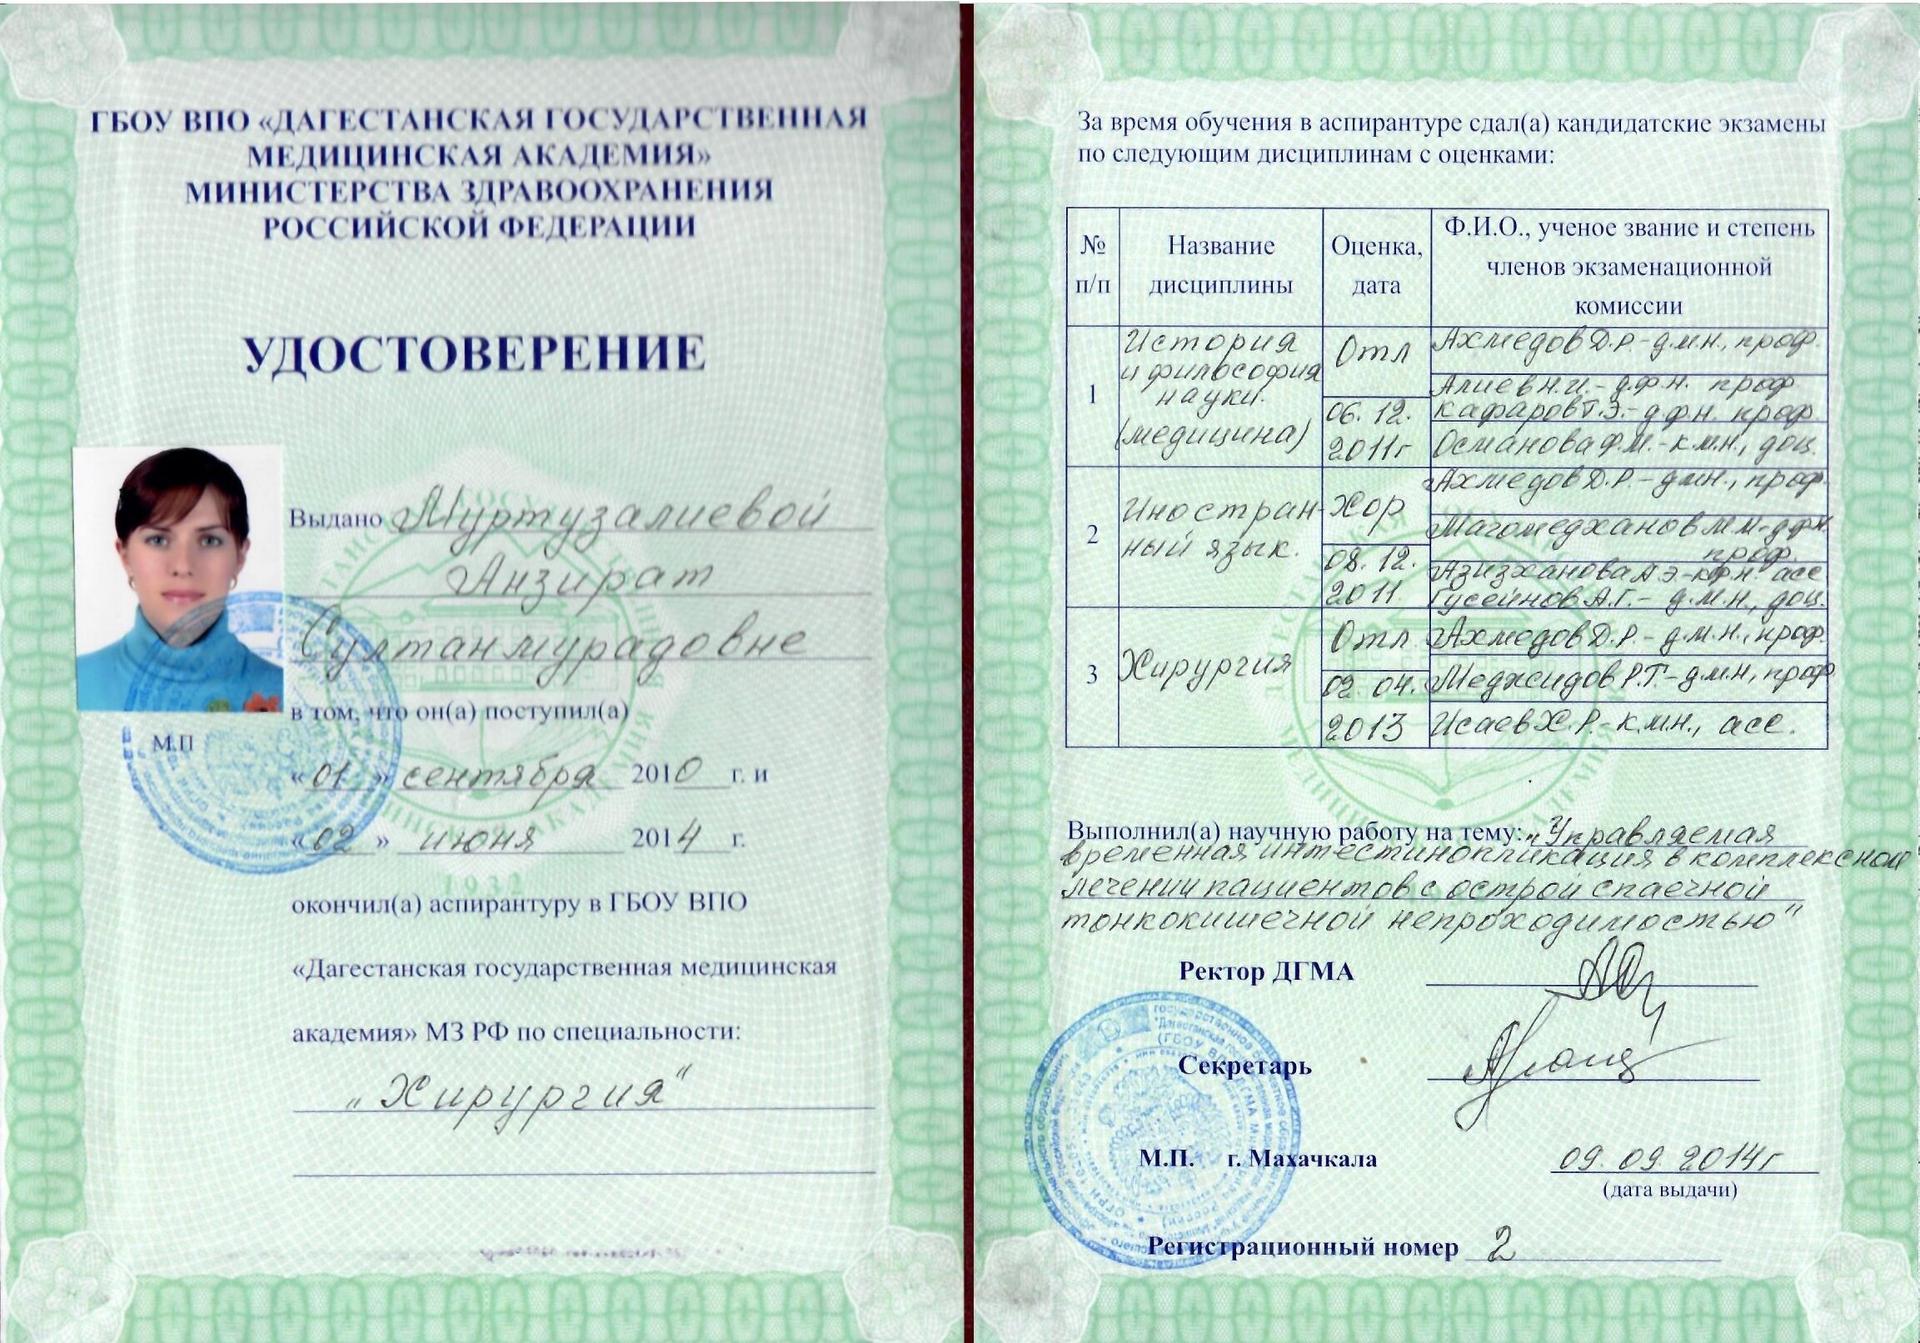 ГБОУ ВПО «ДАГЕСТАНСКАЯ ГОСУДАРСТВЕННАЯ
МЕДИЦИНСКАЯ АКАДЕМИЯ»
МИНИСТЕРСТВА ЗДРАВООХРАНЕНИЯ
РОССИЙСКОЙ ФЕДЕРАЦИИ
УДОСТОВЕРЕНИЕ
Выдано Муртузалиевой
Анзират
Султанмурадовне
в том, что он(а) поступил(а)
М.П
«01» сентября 2010 г. и
«02» июня 2014 г.
1932
окончил(а) аспирантуру в ГБОУ ВПО
«Дагестанская государственная медицинская
академия» МЗ РФ по специальности:
„Хирургия"
За время обучения в аспирантуре сдал(а) кандидатские экзамены
по следующим дисциплинам с оценками:
№ п/п
Название дисциплины
Оценка, дата
Ф.И.О., ученое звание и степень членов экзаменационной комиссии
1
История
и философия
науки.
(медицина)
Отл
06.12.
2011г
Ахмедов Д.Р.-д.м.н., проф.
Алиев Н.И.-д.ф.н. проф
Кафаров Т.Э.-д.ф.н. проф
Османова Ф.М.-к.м.н., доц.
2
Иностран-
ный язык.
Хор
08.12.
2011
Ахмедов Д.Р-дмн., проф.
Магомедханов М.М-д.ф.н.
проф.
Азизханова А Э-кфн асс
Гусейнов А.Г.- д.м.н., доц.
3
Хирургия
Отл
02 04.
2013
Ахмедов Д.Р.- д.м.н., проф.
Меджидов Р.Т.-д.м.н, проф
Исаев Х.Р.-к.м.н., асс.
Выполнил(а) научную работу на тему: „Управляемая
временная интестинопликация в комплексном
лечении пациентов с острой спаечной
тонкокишечной непроходимостью"
Ректор ДГМА
Секретарь
М.П. г. Махачкала
09.09.2014г
(дата выдачи)
Регистрационный номер 2